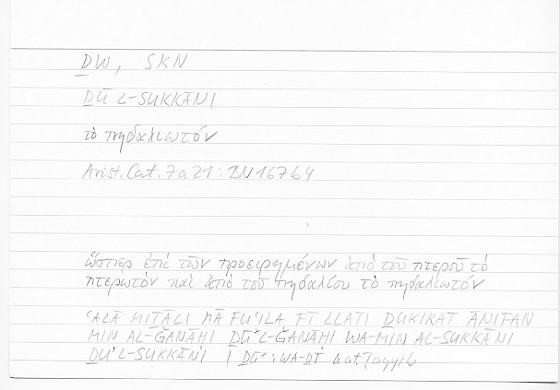 ḎW, SKN
ḎŪ L-SUKKĀNI
τὸ πηδαλιωτόν
Arist. Cat. 7a21: BN167b4
ὥσπερ ἐπὶ τῶν προειρημένων ἀπὸ τοῦ πτεροῦ τὸ
πτερωτὸν καὶ ἀπὸ τοῦ πηδαλίου τὸ πηδαλιωτόν
ʿALĀ MIṮĀLI MĀ FUʿILA FĪ LLATĪ ḎUKIRAT ĀNIFAN
MIN AL-ǦANĀḤI ḎŪ L-ǦANĀḤI WA-MIN AL-SUKKĀNI
ḎŪ L-SUKKĀNI | ḎŪ: WA-ḎĪ